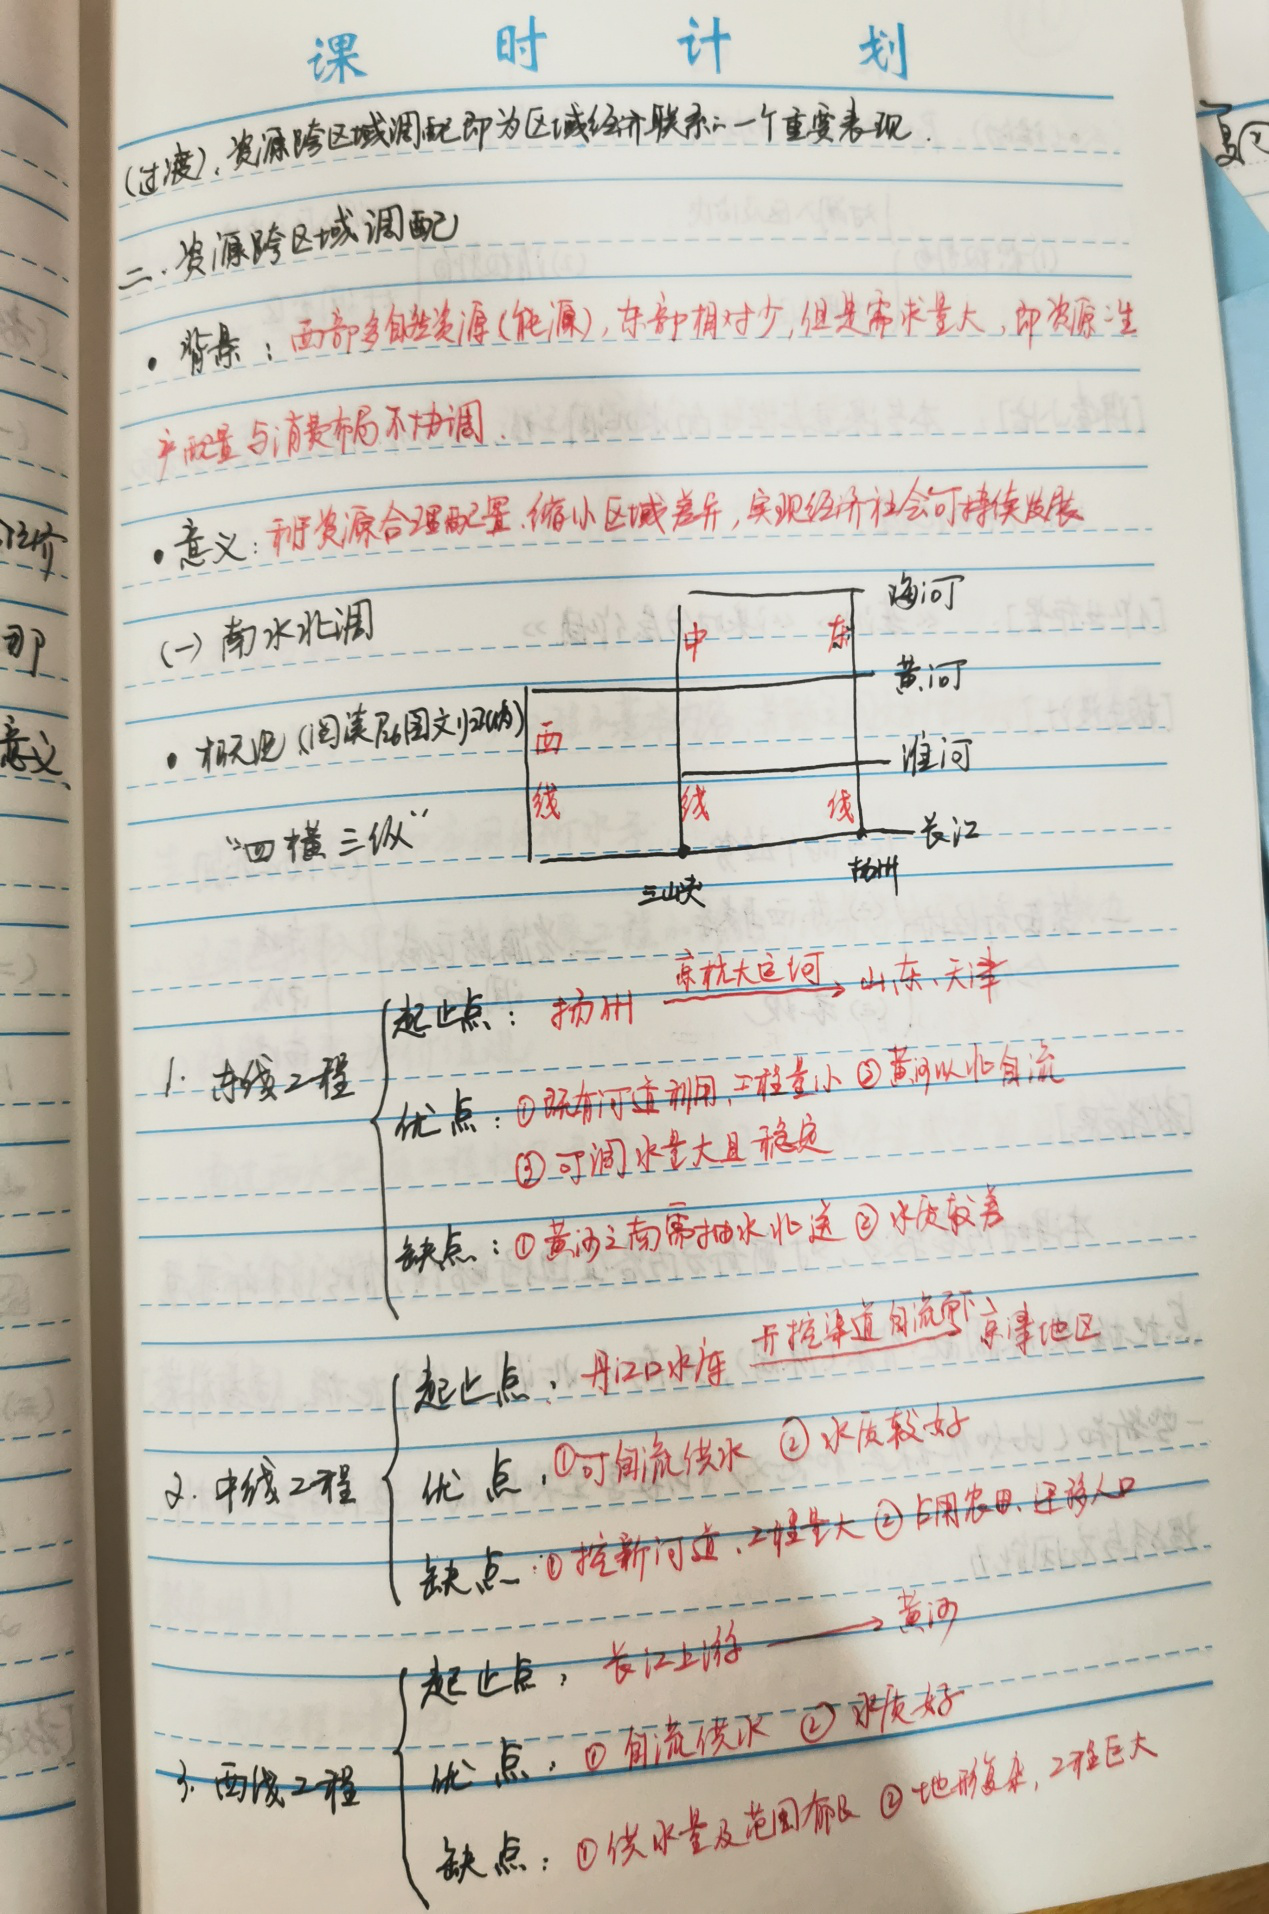 课时计划
(过渡)、资源跨区域调配即为区域经济联系的一个重要表现.
二、资源跨区域调配
• 背景：西部多自然资源(能源)，东部相对少，但是需求量大，即资源之生
产配置与消费布局不协调.
• 意义：利于资源合理配置、缩小区域差异，实现经济社会可持续发展
(一) 南水北调
海河
中 东
黄河
• 概况 (阅读P26图文归纳)
西
淮河
线 线 线
"四横三纵"
长江
三峡 扬州
1. 东线工程
起止点：扬州 京杭大运河 → 山东、天津
优点：①既有河道利用，工程量小 ②黄河以北自流
③可调水量大且稳定
缺点：①黄河之南需抽水北送 ②水质较差
2. 中线工程
起止点：丹江口水库 开挖渠道自流而下 京津地区
优点：①可自流供水 ②水质较好
缺点：①挖新河道、工程量大 ②占用农田、迁移人口
3. 西线工程
起止点：长江上游 → 黄河
优点：①自流供水 ②水质好
缺点：①供水量及范围有限 ②地形复杂，工程巨大
意义